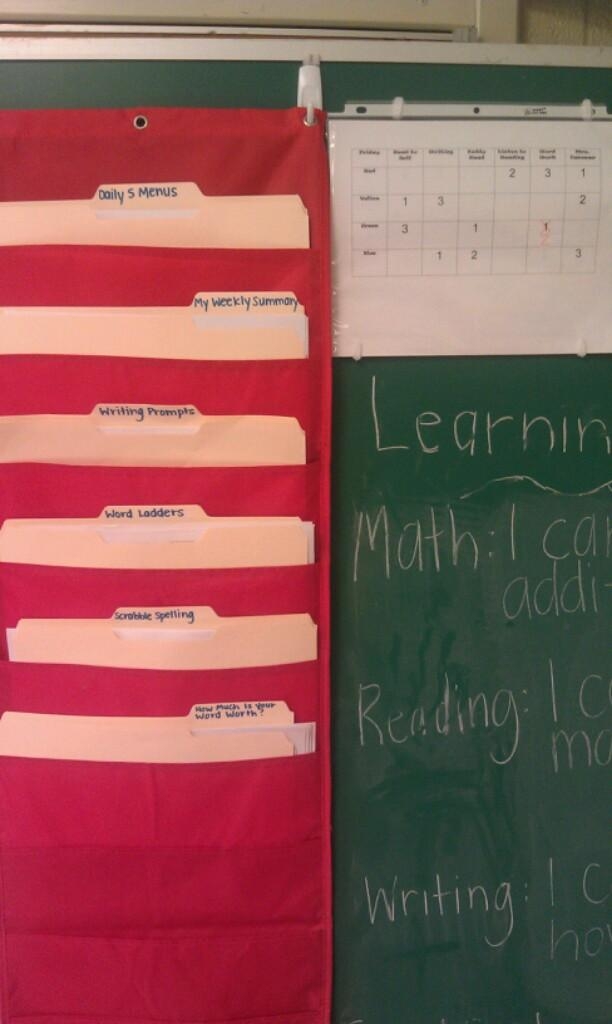 Daily 5 Menus
My Weekly Summary
Writing Prompts
Word Ladders
Scrabble Spelling
How Much Is Your
Word Worth?
Friday Read to Self Writing Buddy Read Listen to Reading Word Work Mrs.
Red 2 3 1
Yellow 1 3 2
Green 3 1 1 2
Blue 1 2 3
Learnin
Math: I can
addi-
Reading: I c
mo
Writing: I c
how